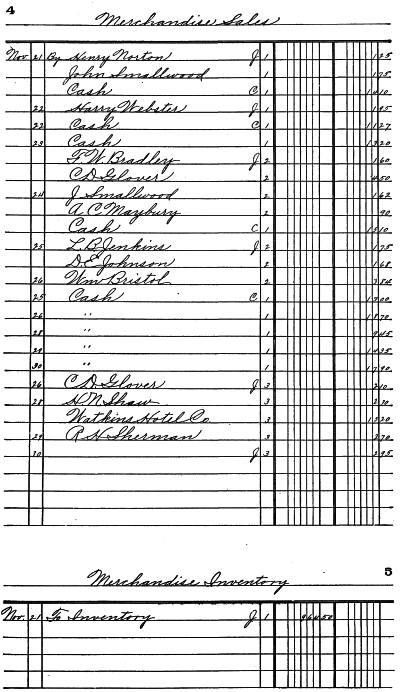 4
Merchandise Sales
Nov. 21 By Henry Norton J 1 1 25
John Smallwood 1 1 75
Cash C 1 14 10
22 Harry Webster J 1 1 95
22 Cash C 1 11 27
23 Cash 1 13 20
F. W. Bradley J 2 1 60
C D Glover 2 4 50
24 J Smallwood 2 1 62
A. C. Maybury 2 90
Cash C 1 15 10
25 L. B. Jenkins J 2 1 75
D. E. Johnson 2 1 68
26 Wm Bristol 2 3 84
25 Cash C 1 17 00
26 " 1 18 70
28 " 1 9 45
29 " 1 14 35
30 " 1 17 90
26 C. D. Glover J 3 2 10
28 H. N. Shaw 3 2 70
Watkins Hotel Co 3 13 20
29 R. H. Sherman 3 2 70
30 J 3 2 95
5
Merchandise Inventory
Nov. 21 To Inventory J 1 964 50